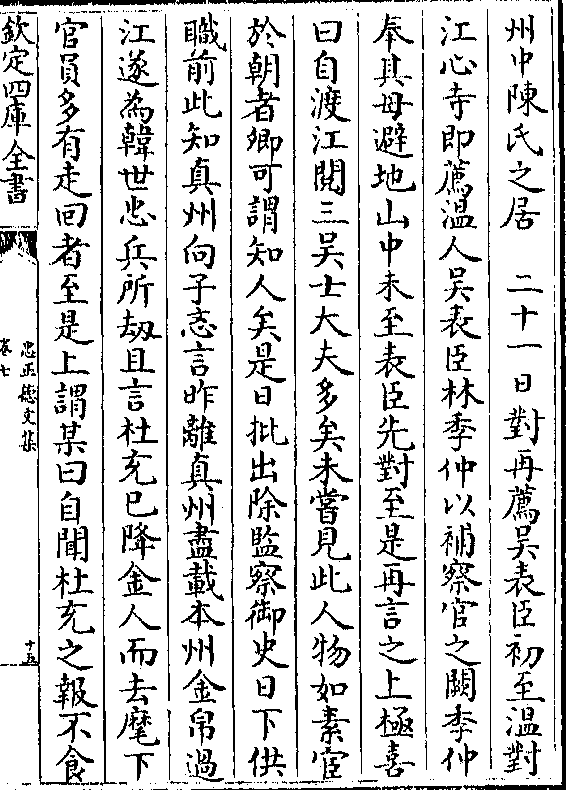 州中陳氏之居　二十一日對再薦吳表臣初至溫對
江心寺即薦溫人吳表臣林季仲以補察官之闕季仲
奉其母避地山中未至表臣先對至是再言之上極喜
曰自渡江閱三吳士大夫多矣未嘗見此人物如素宦
於朝者卿可謂知人矣是日批出除監察御史日下供
職前此知真州向子忞言昨離真州盡載本州金帛過
江遂為韓世忠兵所劫且言杜充已降金人而去麾下
官員多有走回者至是上謂某曰自聞杜充之報不食
欽定四庫全書
忠正德文集
卷七
十五